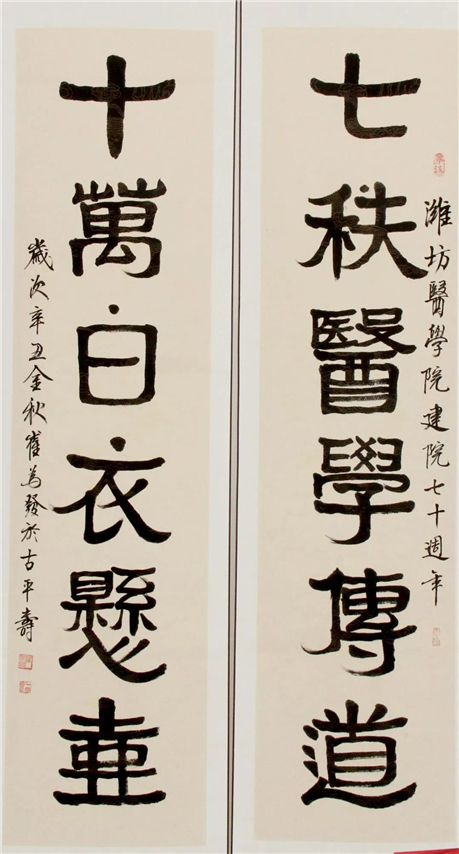 濰坊醫學院建院七十週年
七秩醫學傳道
十萬白衣懸壺
歲次辛丑金秋崔為發於古平壽